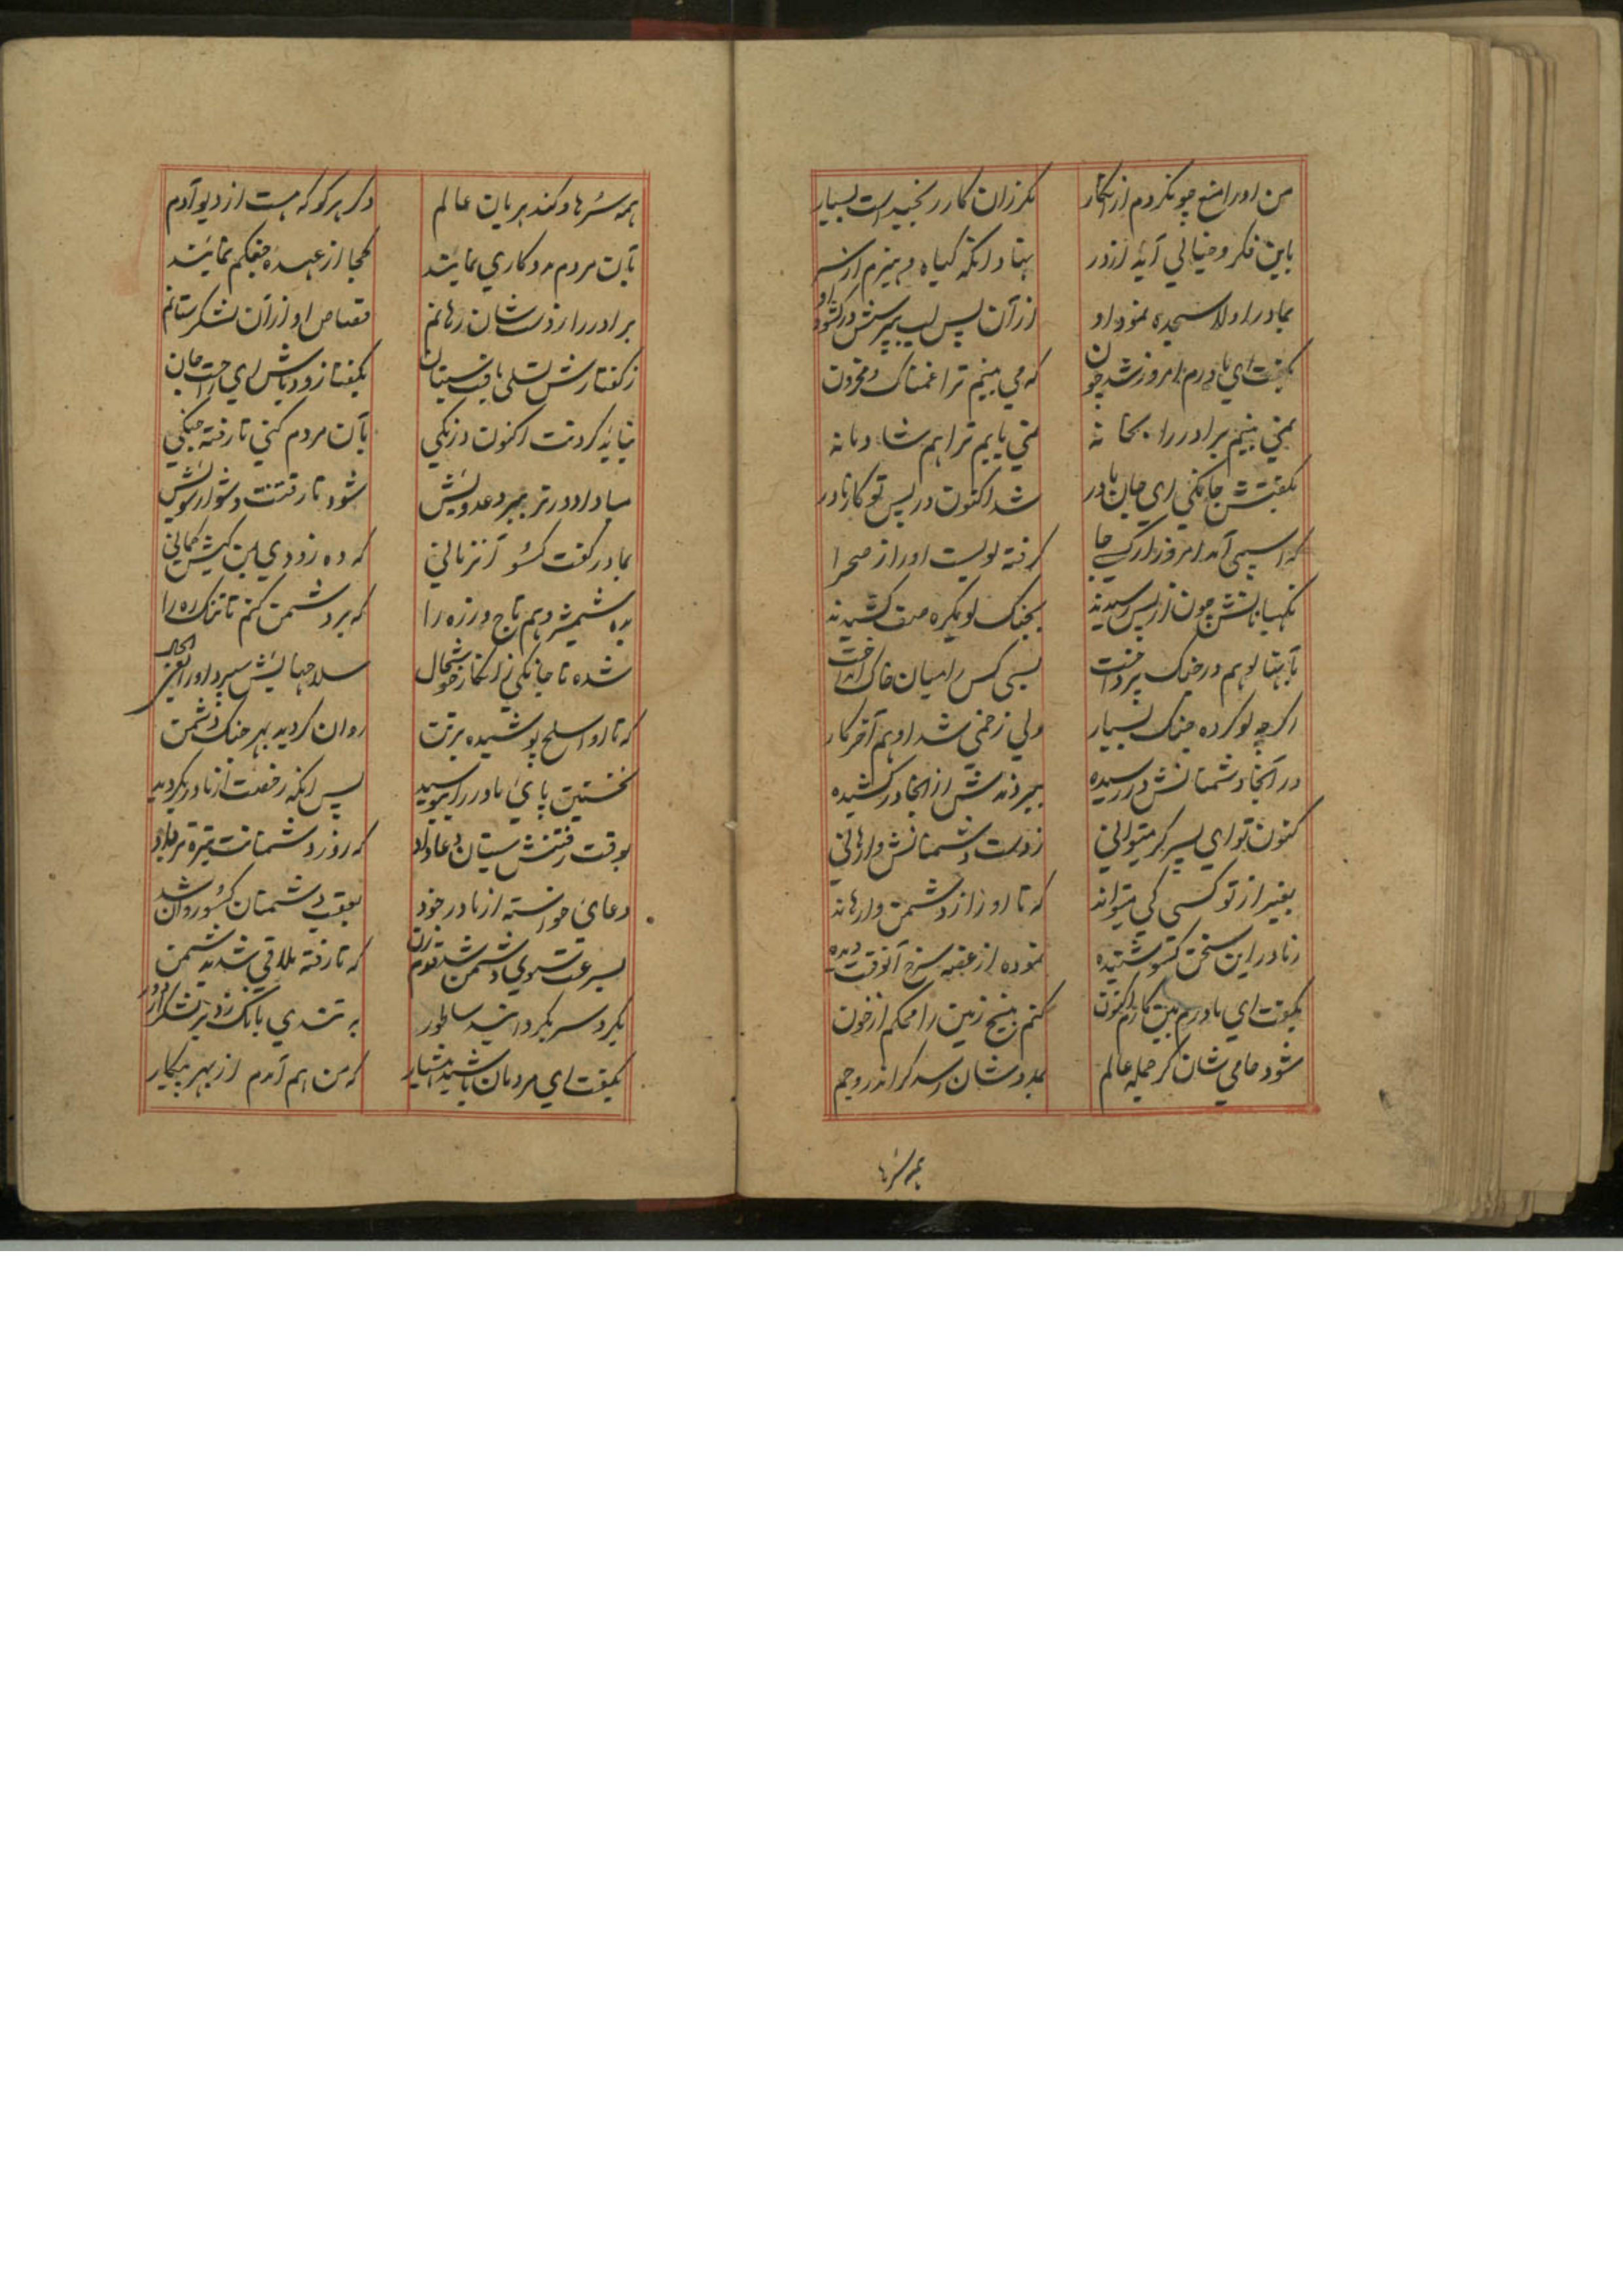 من اورا منع چو نکردم ازینکار مکر زان کار رنجیدست بسیار
باین فکر و خیالی آیه از در بنهاد انکه کیاه و هیزم از سر
بمادر اولا سجده نمود او از آن پس لب بپرسش در کشود او
بکفت ای مادرم امروز شد چون که می بینم ترا غمناک و محزون
نمی بینم برادر را بخانه نمی یابم ترا هم شادمانه
بکفتش جانکنی ای جان مادر شد اکنون در پس تو کار نادر
که اسپی آمد امروز از کسی جا کرفته لویست اورا از صحرا
نکهبانانش چون از پس رسیدند بجنک لو یکره صف کشیدند
بآنها لو هم در جنک پرداخت بسی کس را میان خاک انداخت
اکرچه لو کرده جنک بسیار ولی زخمی شد او هم آخر کار
در آنجا دشمنانش در رسیده ببردندش از انجا در کشیده
کنون تو ای پسر کر میتوانی ز دست دشمنانش وارهانی
بغیر از تو کسی کی میتواند که تا او را از دشمن وارهاند
ز مادر این سخن کسو شنیده نموده از غضب سرخ آنوقت دیده
بکفت ای مادرم بین کارم اکنون کنم بیخ زمین را محکم از خون
شود حامی شان کر جمله عالم بمددشان رسد کر اندر و جم
همه سرها
همه سرها و کندهربان عالم دکر هرکو که هست از دیو آدم
بآن مردم مددکاری نمایند کجا از عهده جنکم نمایند
برادر را ز دست شان رهانم قصاص او از آن لشکر ستانم
ز کفتارش تسلی یافت سیتان بکفتا زود باش ای راحت جان
نباید کردنت اکنون درنکی بآن مردم کنی تا رفته جنکی
مبادا دورتر ببرد عدویش شود تا رفتنت دشوار سویش
بمادر کفت کسو آنزمانی که ده زودی بمن کیش کمانی
بده شمشیر و هم تاج و زره را که بر دشمن کنم تا تنک ره را
شده تا جانکنی زانکار خوشحال سلاحهایش سپرد اورا فی الحال
که تا او اسلح پوشیده برتن روان کردید بهر جنک دشمن
نخستین پای مادر را ببوسید پس انکه رخصت از مادر بکردید
بوقت رفتنش سیتان دعا داد که روز دشمنانت تیره تر باد
دعای خواسته از مادر خود بعقب دشمنان کسو روان شد
بسرعت سوی دشمن شد قدم زن که تا رفته ملاقی شد بدشمن
بکرد سر بکردانید ساطور به تندی بانک زد بر لشکر از دور
بکفت ای مردمان باشید هشیار که من هم آمدم از بهر پیکار